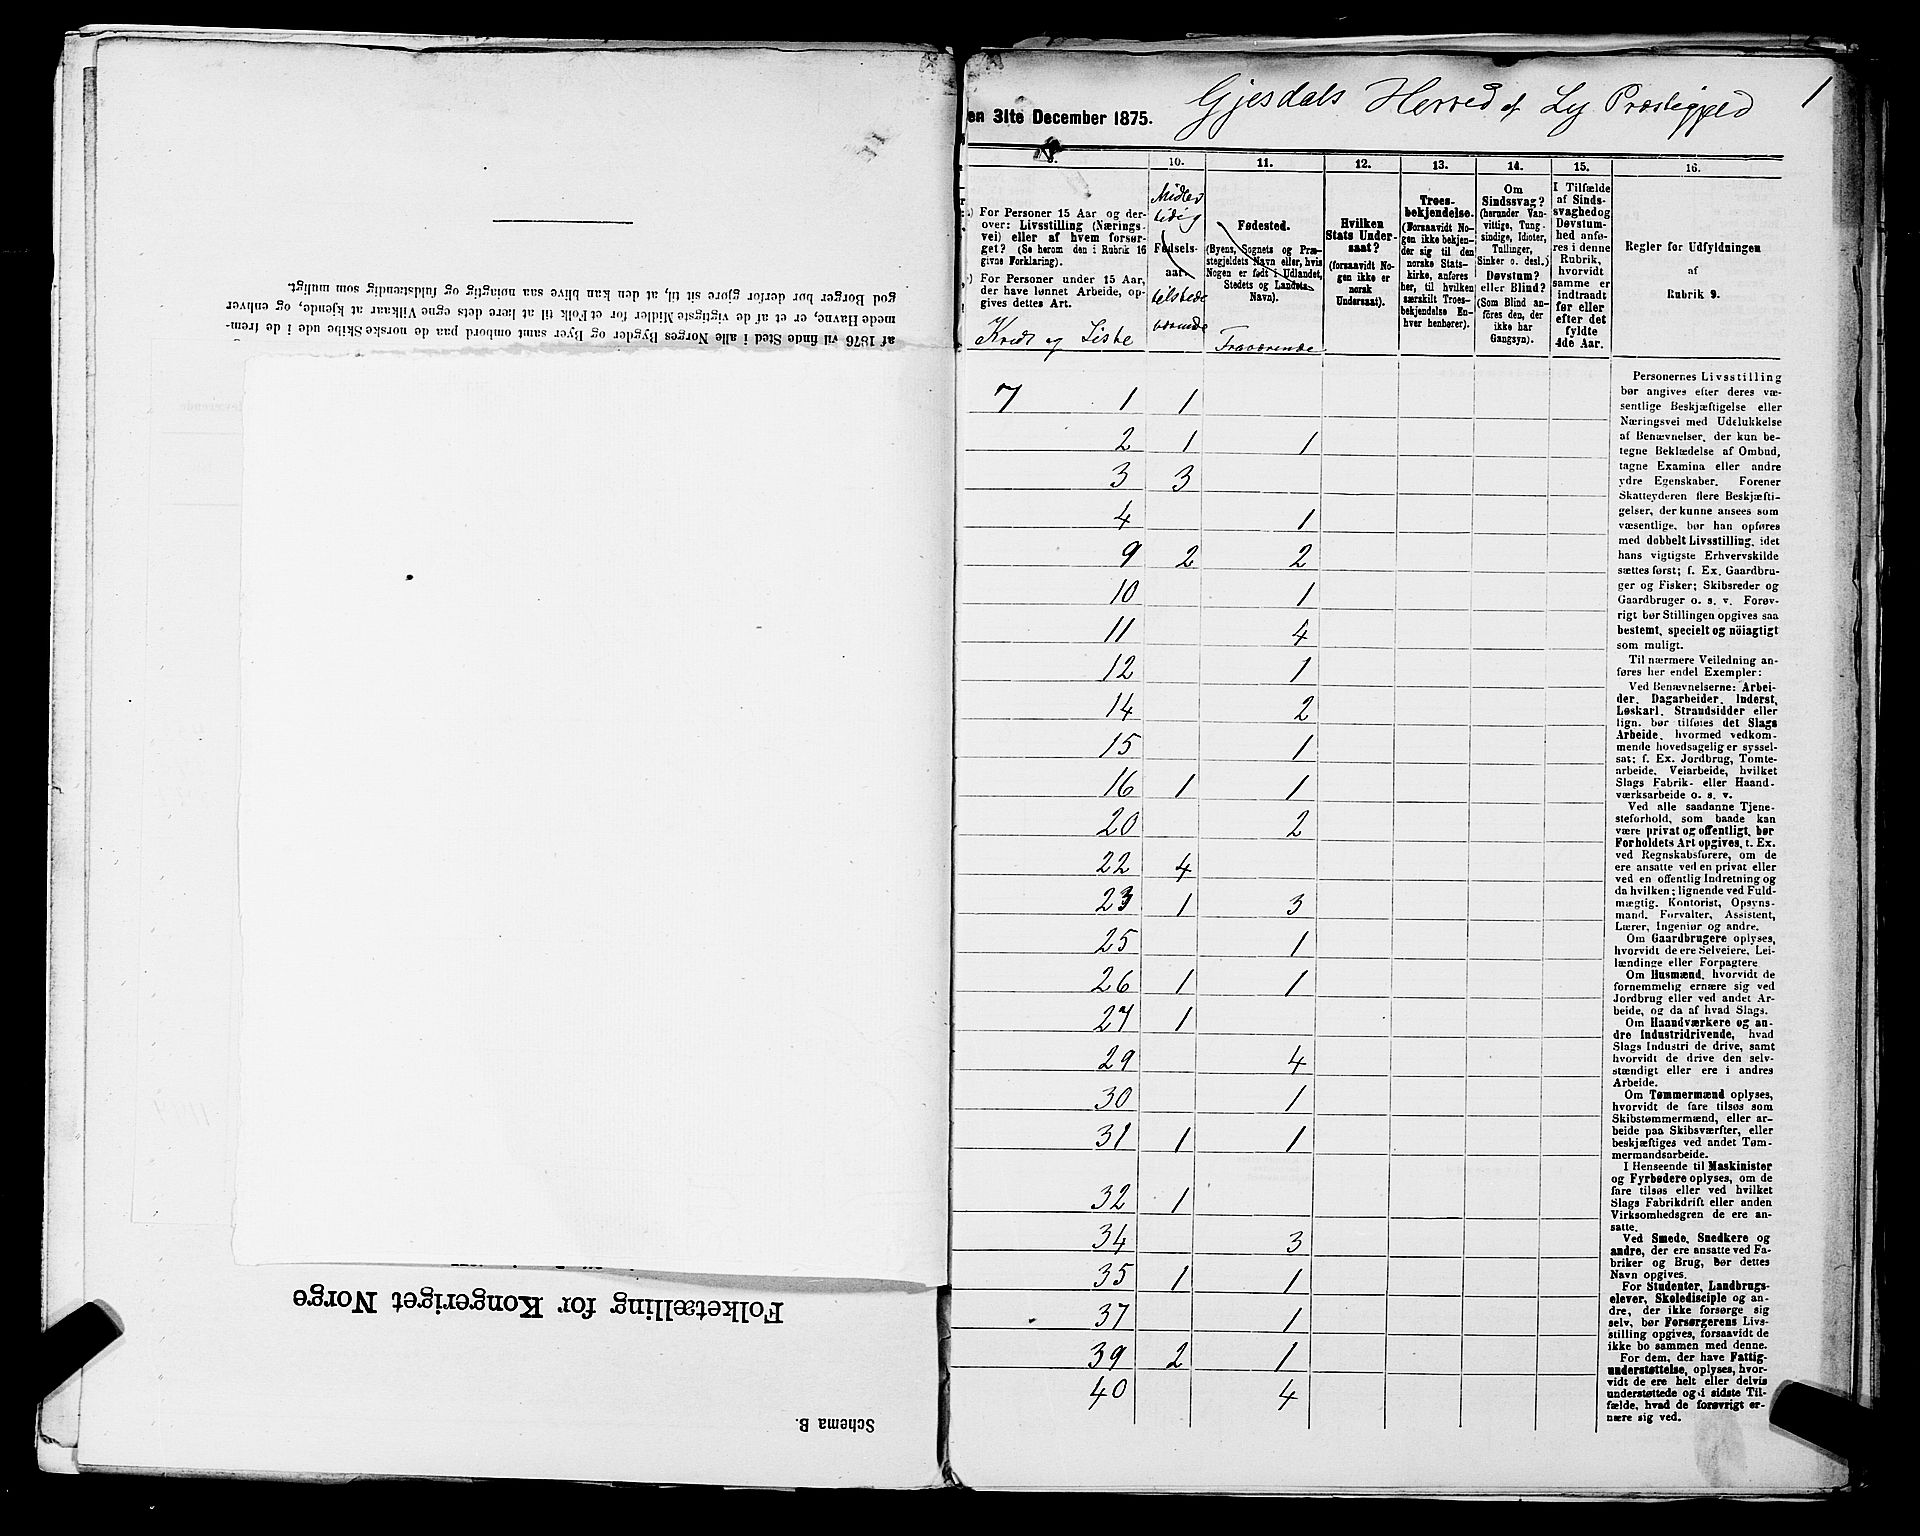 af 1876 vil finde Sted i alle Norges Bygder og Byer samt ombord paa de norske Skibe ude i de frem-
mede Havne, er et af de vigtigste Midler for et Folk til at lære dets egne Vilkaar at kjende, og enhver
god Borger bør derfor gjøre sit til, at den kan blive saa nøiagtig og fuldstændig som muligt.
Folketælling for Kongeriget Norge
Schema B.
en 31te December 1875.
Gjesdals Herred af Ly Præstegjeld
1
10. 11. 12. 13. 14. 15. 16.
For Personer 15 Aar og der-
over: Livsstilling (Nærings-
vei) eller af hvem forsør-
get? (Se herom den i Rubrik 16
givne Forklaring).
For Personer under 15 Aar,
der have lønnet Arbeide, op-
gives dettes Art.
Kreds og Liste
Midler
tidig
Fødsels-
aar.
tilstede
værende
Fødested.
(Byens, Sognets og Præ-
stegjeldets Navn eller, hvis
Nogen er født i Udlandet,
Stedets og Landets
Navn).
Fraværende
Hvilken
Stats Under-
saat?
(forsaavidt No-
gen ikke er
norsk
Undersaat).
Troes-
bekjendelse.
(Forsaavidt No-
gen ikke bekjen-
der sig til den
norske Stats-
kirke, anføres
her, til hvilken
særskilt Troes-
bekjendelse En-
hver henhører).
Om
Sindssvag?
(herunder Van-
vittige, Tung-
sindige, Idioter,
Tullinger,
Sinker o. desl.)
Døvstum?
eller Blind?
(Som Blind an-
føres den, der
ikke har
Gangsyn).
I Tilfælde
af Sinds-
svaghed og
Døvstum-
hed anfø-
res i denne
Rubrik,
hvorvidt
samme er
indtraadt
før eller
efter det
fyldte
4de Aar.
Regler for Udfyldningen
af
Rubrik 9.
7 1 1
2 1 1
3 3
4 1
9 2 2
10 1
11 4
12 1
14 2
15 1
16 1 1
20 2
22 4
23 1 3
25 1
26 1 1
27 1
29 4
30 1
31 1 1
32 1
34 3
35 1 1
37 1
39 2 1
40 4
Personernes Livsstilling
bør angives efter deres væ-
sentlige Beskjæftigelse eller
Næringsvei med Udelukkelse
af Benævnelser, der kun be-
tegne Beklædelse af Ombud,
tagne Examina eller andre
ydre Egenskaber. Forener
Skatteyderen flere Beskjæfti-
gelser, der kunne ansees som
væsentlige, bør han opføres
med dobbelt Livsstilling, idet
hans vigtigste Erhvervskilde
sættes først; f. Ex. Gaardbru-
ger og Fisker; Skibsreder og
Gaardbruger o. s. v. Forøv-
rigt bør Stillingen opgives saa
bestemt, specielt og nöiagtigt
som muligt.
Til nærmere Veiledning an-
føres her endel Exempler:
Ved Benævnelserne: Arbei-
der, Dagarbeider, Inderst,
Løskarl, Strandsidder eller
lign. bør tilføies det Slags
Arbeide, hvormed vedkom-
mende hovedsagelig er syssel-
sat; f. Ex. Jordbrug, Tomte-
arbeide, Veiarbeide, hvilket
Slags Fabrik- eller Haand-
værksarbeide o. s. v.
Ved alle saadanne Tjene-
steforhold, som baade kan
være privat og offentligt, bør
Forholdets Art opgives, f. Ex.
ved Regnskabsførere, om de
ere ansatte ved en privat eller
ved en offentlig Indretning og
da hvilken; lignende ved Fuld-
mægtig, Kontorist, Opsyns-
mand, Forvalter, Assistent,
Lærer, Ingeniør og andre.
Om Gaardbrugere oplyses,
hvorvidt de ere Selveiere, Lei-
lændinge eller Forpagtere
Om Husmænd, hvorvidt de
fornemmelig ernære sig ved
Jordbrug eller ved andet Ar-
beide, og da af hvad Slags.
Om Haandværkere og an-
dre Industridrivende, hvad
Slags Industri de drive, samt
hvorvidt de drive den selv-
stændigt eller ere i andres
Arbeide.
Om Tømmermænd oplyses,
hvorvidt de fare tilsøs som
Skibstømmermænd, eller ar-
beide paa Skibsværfter, eller
beskjæftiges ved andet Tøm-
mermandsarbeide.
I Henseende til Maskinister
og Fyrbødere oplyses, om de
fare tilsøs eller ved hvilket
Slags Fabrikdrift eller anden
Virksomhedsgren de ere an-
satte.
Ved Smede, Snedkere og
andre, der ere ansatte ved Fa-
briker og Brug, bør dettes
Navn opgives.
For Studenter, Landbrugs-
elever, Skoledisciple og an-
dre, der ikke forsørge sig
selv, bør Forsørgerens Livs-
stilling opgives, forsaavidt de
ikke bo sammen med denne.
For dem, der have Fattig-
understøttelse, oplyses, hvor-
vidt de ere helt eller delvis
understøttede og i sidste Til-
fælde, hvad de forøvrigt er-
nære sig ved.